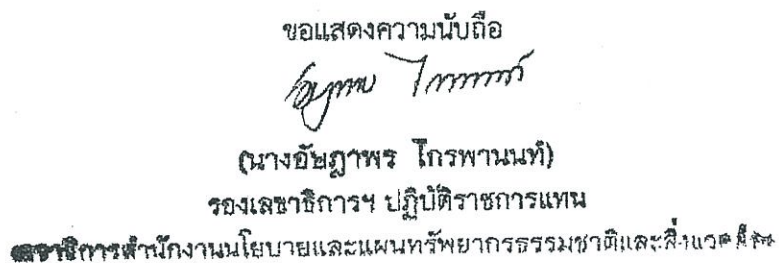 ขอแสดงความนับถือ
(นางอัษฎาพร ไกรพานนท์)
รองเลขาธิการฯ ปฏิบัติราชการแทน
เลขาธิการสำนักงานนโยบายและแผนทรัพยากรธรรมชาติและสิ่งแวดล้อม